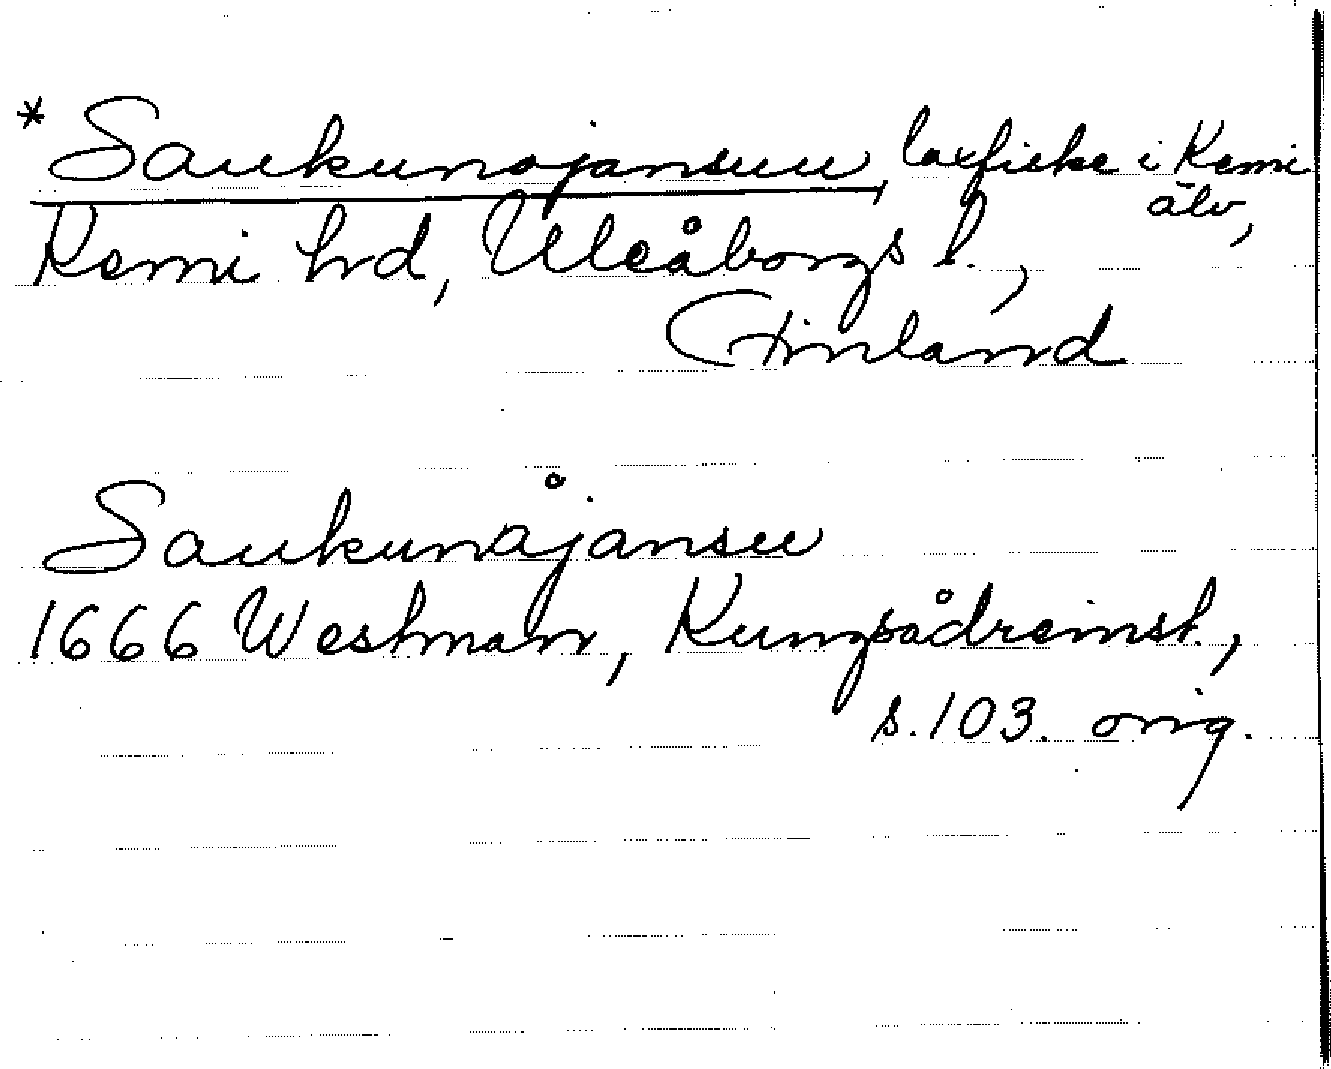 * Saukunojansuu, laxfiske i Kemi
älv,
Kemi hrd, Uleåborgs l.,
Finland
Saukunåjansu
1666 Westman, Kungsådreinst.,
s. 103. orig.